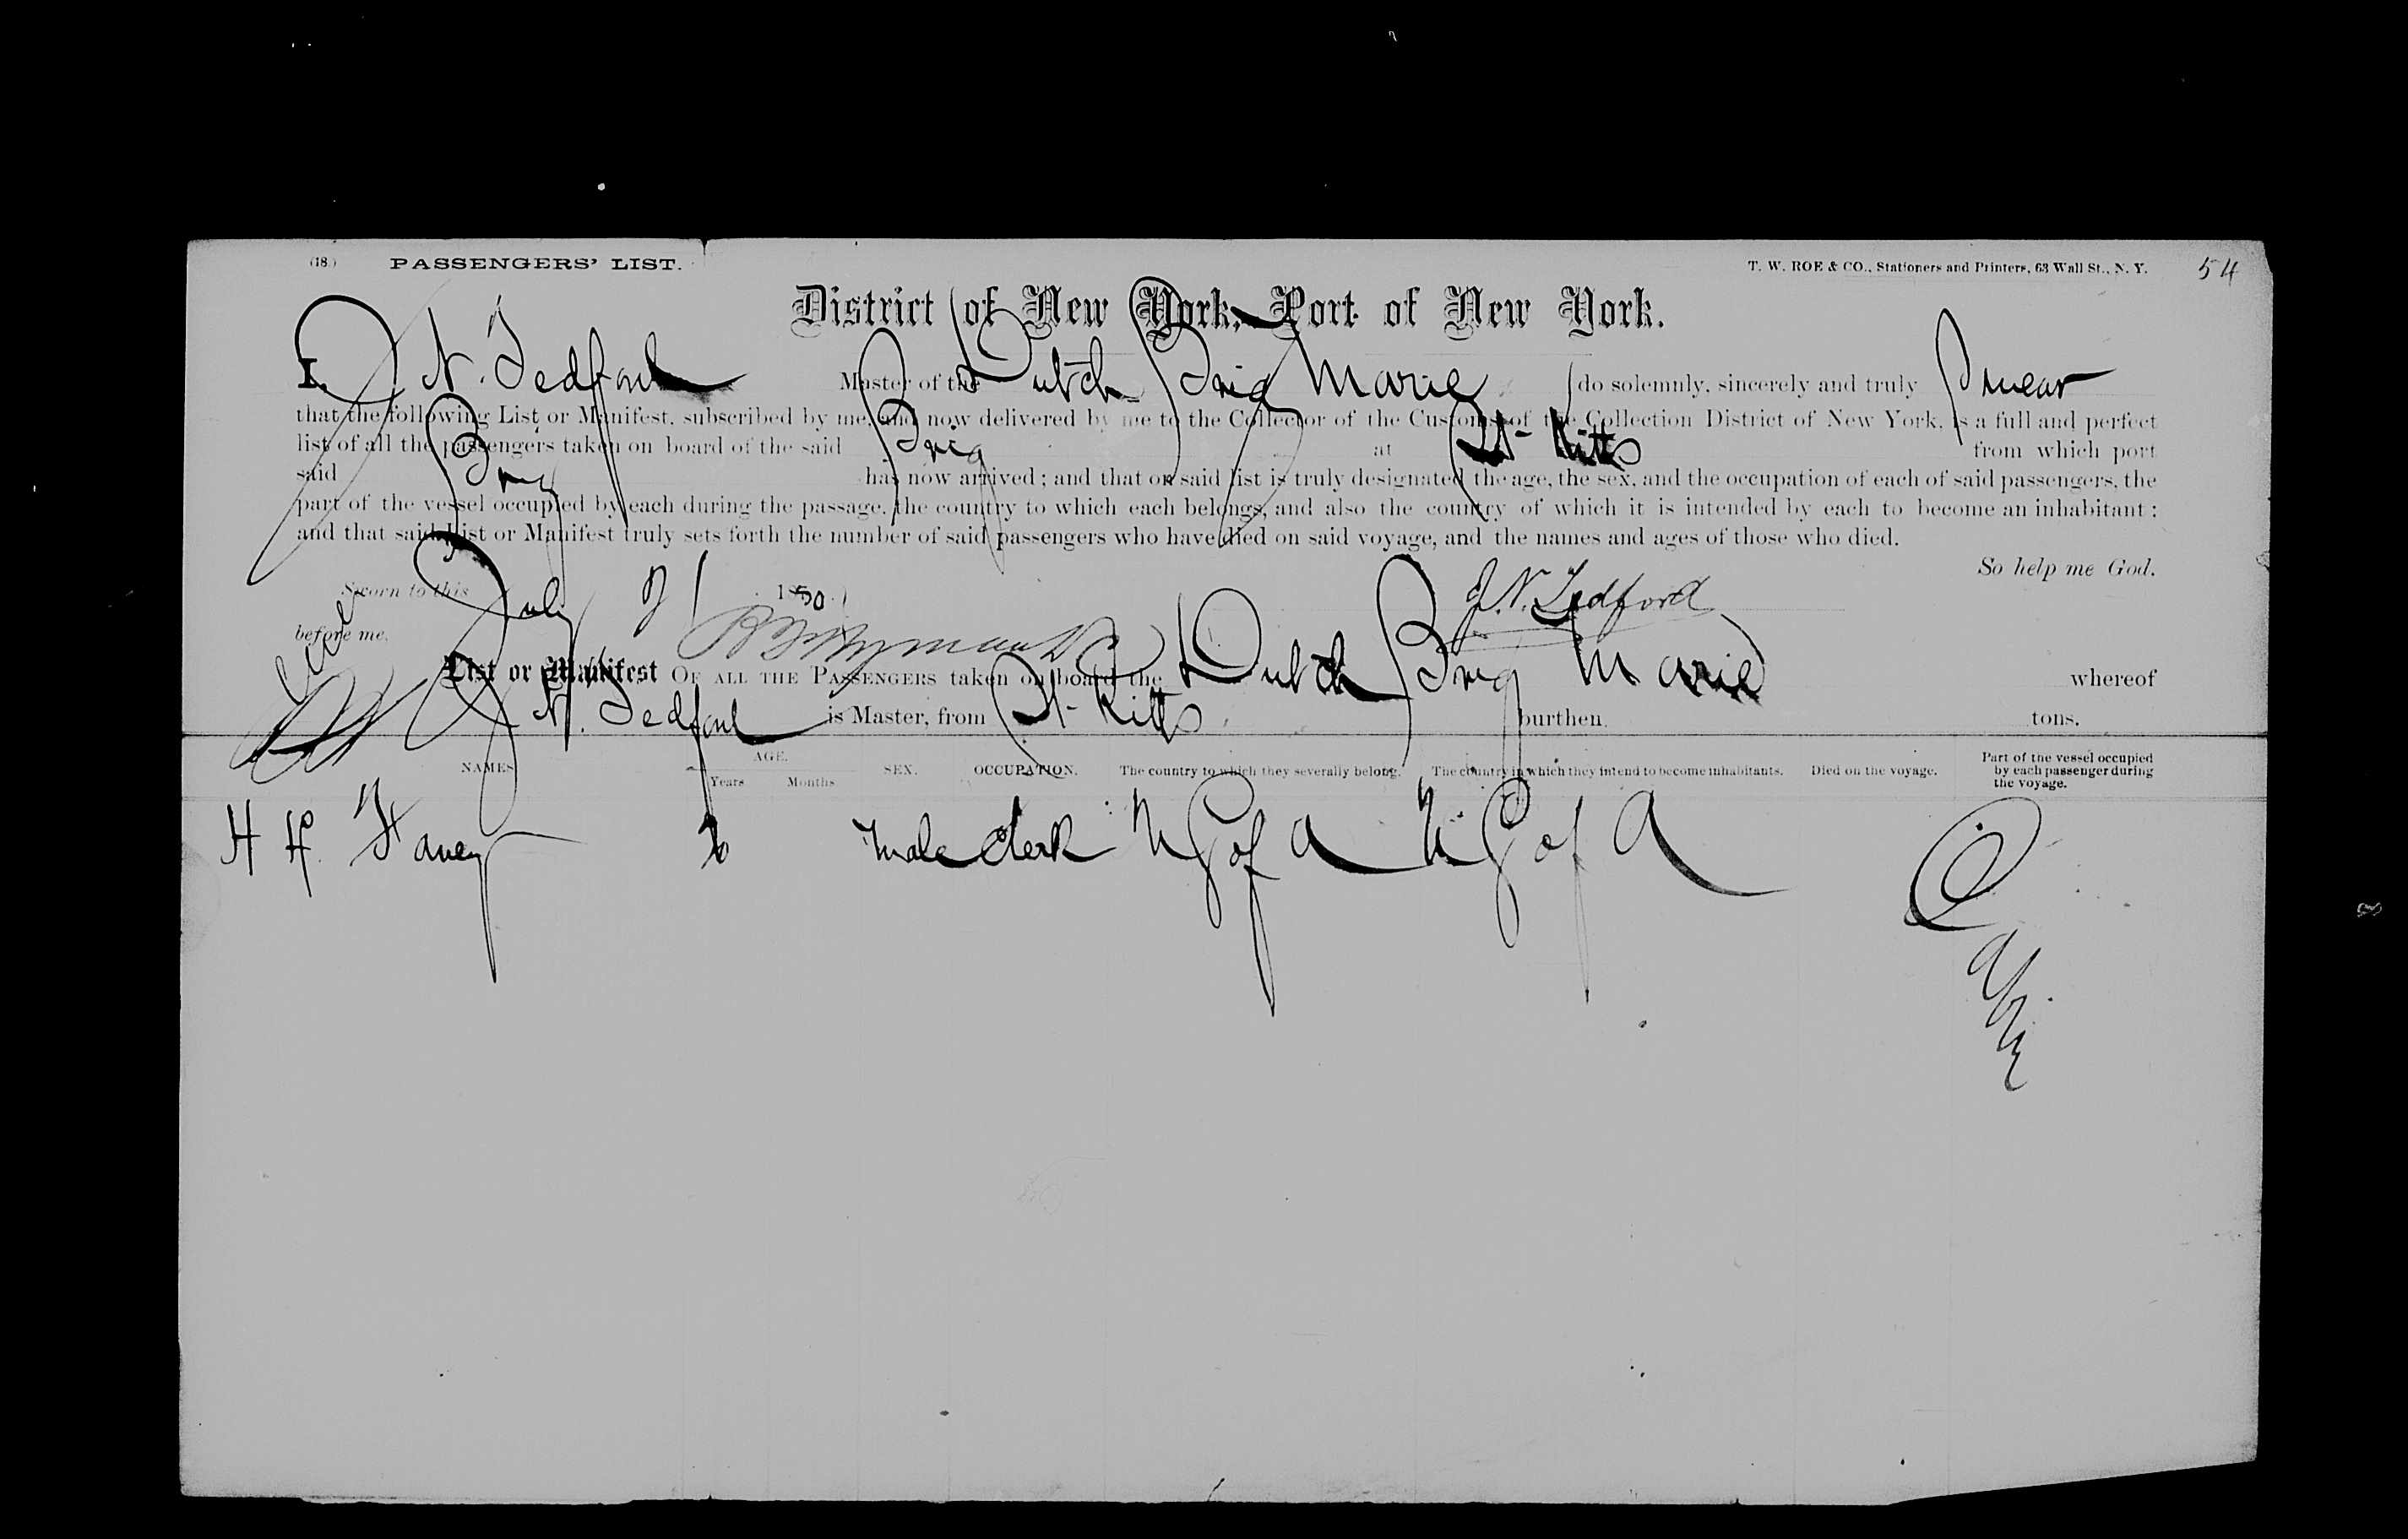 (18.) PASSENGERS' LIST. T. W. ROE & CO., Stationers and Printers, 63 Wall St., N. Y. 54
District of New York, Port of New York.
I, J. N. Tedford Master of the Dutch Brig Marie do solemnly, sincerely and truly Swear
that the following List or Manifest, subscribed by me, and now delivered by me to the Collector of the Customs of the Collection District of New York, is a full and perfect
list of all the passengers taken on board of the said Brig at St. Kitts from which port
said Brig has now arrived; and that on said list is truly designated the age, the sex, and the occupation of each of said passengers, the
part of the vessel occupied by each during the passage, the country to which each belongs, and also the country of which it is intended by each to become an inhabitant;
and that said List or Manifest truly sets forth the number of said passengers who have died on said voyage, and the names and ages of those who died.
So help me God.
Sworn to this July J. N. Tedford
before me,
List or Manifest OF ALL THE PASSENGERS taken on board the Dutch Brig Marie whereof
J. N. Tedford is Master, from St. Kitts burthen, tons.
NAMES AGE. Years Months SEX. OCCUPATION. The country to which they severally belong. The country in which they intend to become inhabitants. Died on the voyage. Part of the vessel occupied by each passenger during the voyage.
H H male Clerk U S of A U S of A Cabin